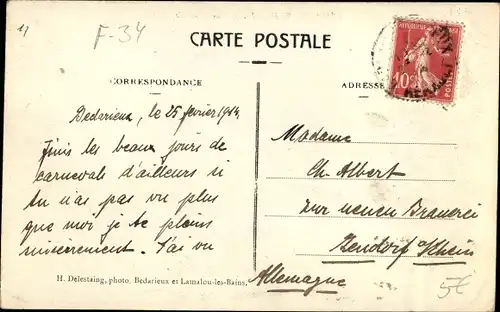 F-34
CARTE POSTALE
CORRESPONDANCE
ADRESSE
10c
POSTES
Bedarieux, le 25 fevrier 1914,
Finis les beaux jours de
carnevals d'ailleurs si
tu n'as pas vu plus
que moi je te plains
sincèrement. J'ai vu
Madame
Ch. Albert
zur neuen Brauerei
Bendorf Rhein
Allemagne
H. Delestaing, photo, Bedarieux et Lamalou-les-Bains.
5€